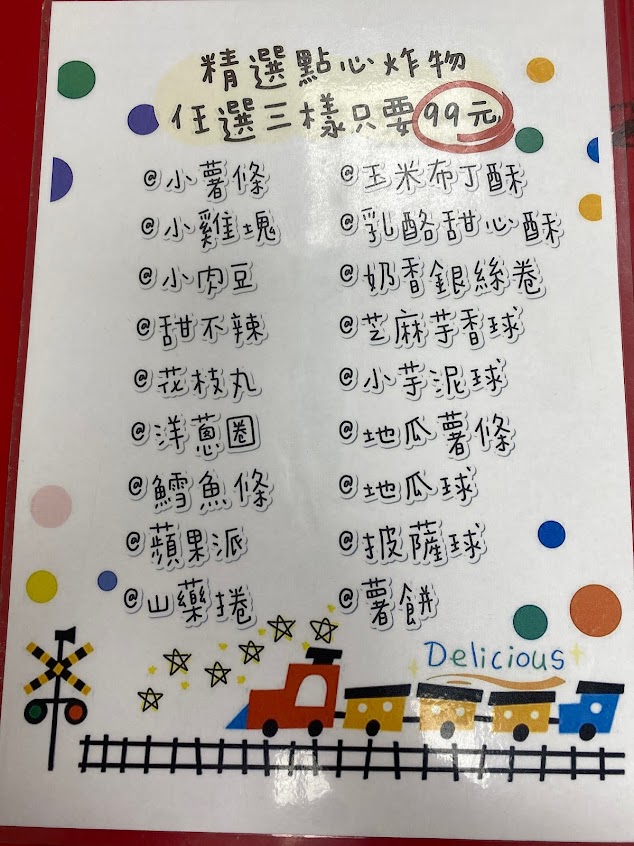 精選點心炸物
任選三樣只要99元
@小薯條
@小雞塊
@小肉豆
@甜不辣
@花枝丸
@洋蔥圈
@鱈魚條
@蘋果派
@山藥捲
@玉米布丁酥
@乳酪甜心酥
@奶香銀絲卷
@芝麻芋香球
@小芋泥球
@地瓜薯條
@地瓜球
@披薩球
@薯餅
Delicious